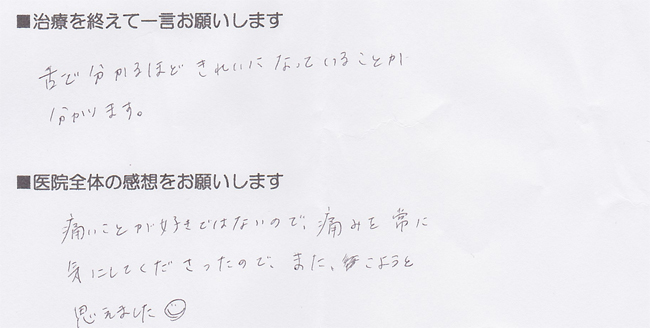 ■治療を終えて一言お願いします
舌で分かるほどきれいになっていることが
分かります。
■医院全体の感想をお願いします
痛いことが好きではないので、痛みを常に
気にしてくださったので、また、こようと
思えました☺